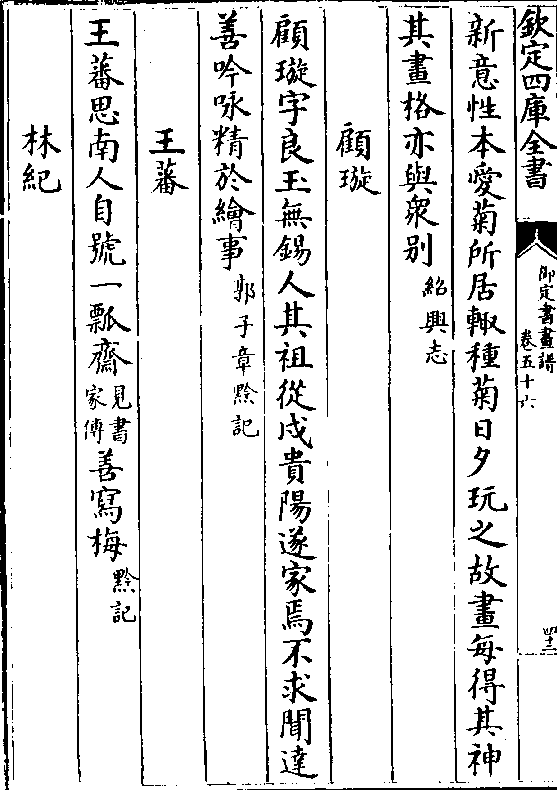 欽定四庫全書
御定書畫譜
卷五十六
四十二
新意性本愛菊所居輙種菊日夕玩之故畫每得其神
其畫格亦與衆别紹興志
顧璇
顧璇字良玉無錫人其祖從戍貴陽遂家焉不求聞達
善吟咏精於繪事郭子章黔記
王蕃
王蕃思南人自號一瓢齋見書家傳善寫梅黔記
林紀